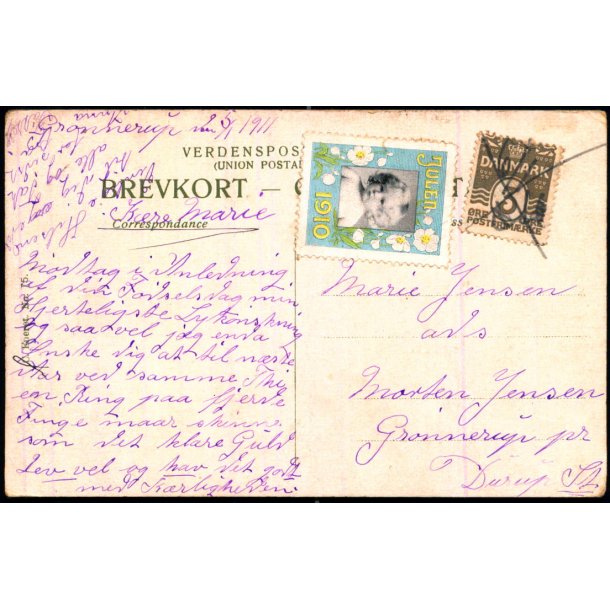 Grønnerup den 5/1 1911
VERDENSPOS
(UNION POSTAL
BREVKORT
Correspondance
Kære Marie
Modtag i Anledning
af din Fødselsdag min
hjerteligste Lykønskning
og saa vel jeg enda
ønske dig at til næste
aar ved samme Thi
en Ring paa fjerde
Finge maar skinne
som det klare Guld
Lev vel og hav det godt
med Kærligheden
JULEN
1910
DANMARK
3
ØRE
POSTFRIMÆRKE
Marie Jensen
ads
Morten Jensen
Grønnerup pr
Durup St